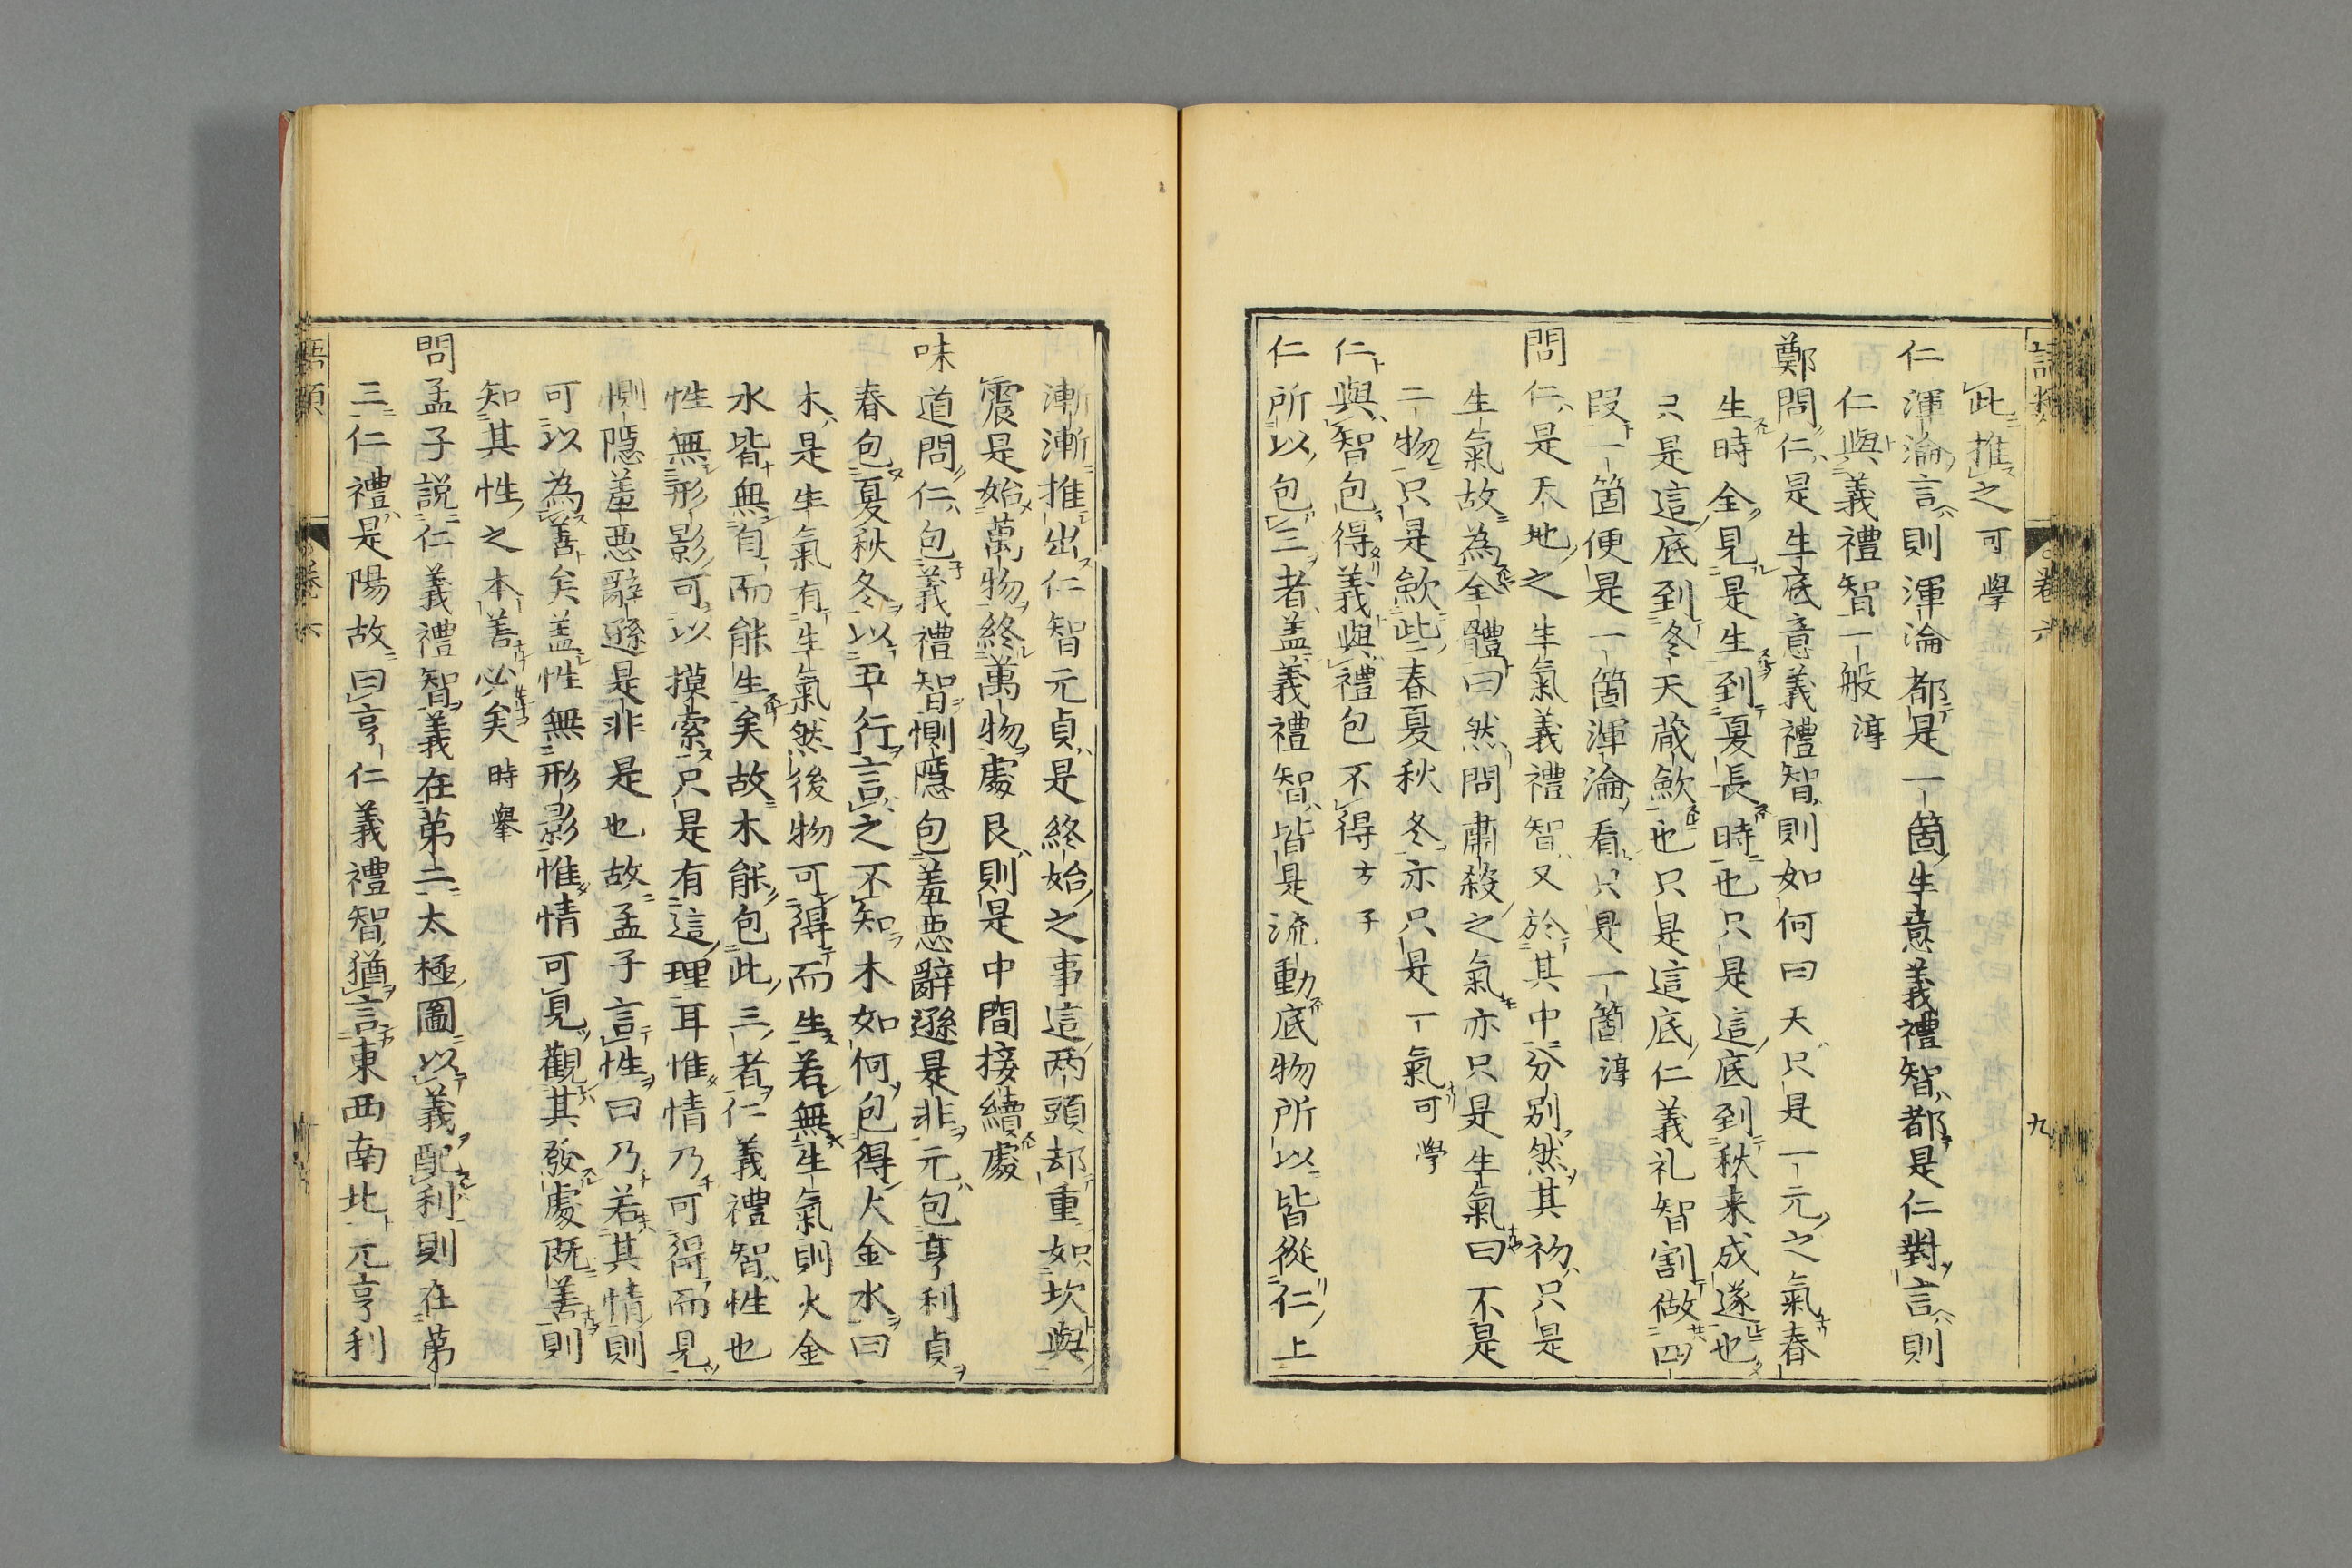 語類 卷六 九
此推之可學
仁渾淪言則渾淪都是一箇生意義禮智都是仁對言則
仁與義禮智一般淳
鄭問仁是生底意義禮智則如何曰天只是一元之氣春
生時全見是生到夏長時也只是這底到秋来成遂也
只是這底到冬天蔵歛也只是這底仁義礼智割做四
段一箇便是一箇渾淪看只是一箇淳
問仁是天地之生氣義禮智又於其中分别然其初只是
生氣故為全體曰然問肅殺之氣亦只是生氣曰不是
二物只是歛些春夏秋冬亦只是一氣可學
仁與智包得義與禮包不得方子
仁所以包三者盖義禮智皆是流動底物所以皆從仁上
漸漸推出仁智元貞是終始之事這两頭却重如坎與
震是始萬物終萬物處艮則是中間接續處
味道問仁包義禮智惻隱包羞惡辭遜是非元包亨利貞
春包夏秋冬以五行言之不知木如何包得火金水曰
木是生氣有生氣然後物可得而生若無生氣則火金
水皆無自而能生矣故木能包此三者仁義禮智性也
性無形影可以摸索只是有這理耳惟情乃可得而見
惻隱羞惡辭遜是非是也故孟子言性曰乃若其情則
可以為善矣盖性無形影惟情可見觀其發處既善則
知其性之本善必矣時舉
問孟子説仁義禮智義在第二太極圖以義配利則在第
三仁禮是陽故曰亨仁義禮智猶言東西南北元亨利
語類 卷六